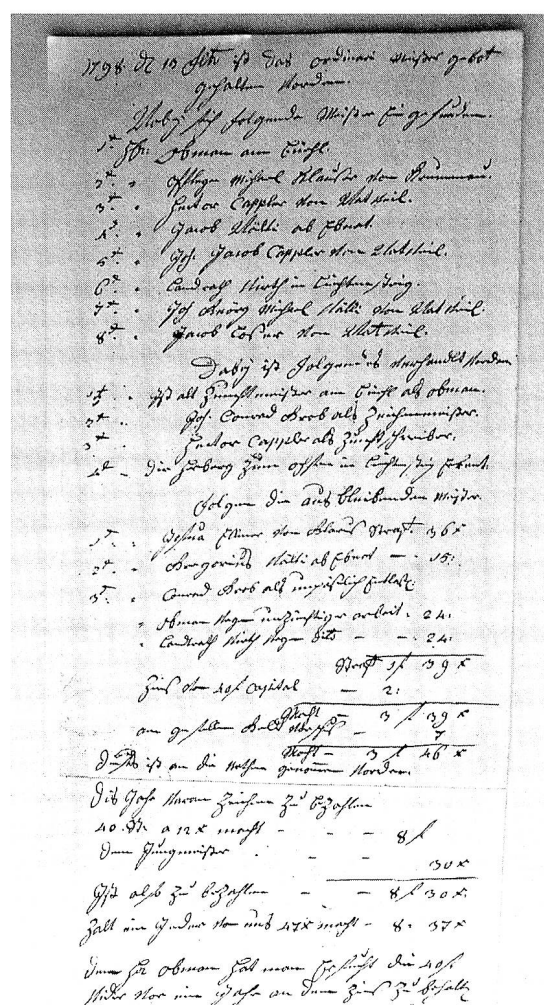 1798 d 13 ist das ordinari Meister gebot
gehalten worden.
Woby sich folgende Meister Eingefunden.
1t. Hr. Obman am Büchl.
2t. " Pfleger Michael Klauser von Brunnau.
3t. " Hector Cappler von Watweil.
4t. " Jacob Wälli ab Ebnet.
5t. " Joh. Jacob Cappler von Watweil.
6t. " Landrath Wirth in Liechtensteig.
7t. " Joh Michael Wälli von Watweil.
8t. " Jacob von Watweil.
Daby ist folgendes verhandlet worden
1t. " ist alt Zunftmeister am Büchl als obman.
2t. " Joh. Conrad Grob als
3t. " Hector Cappler als Zunftschreiber.
4t. " die Herberg Zum ochsen in Liechtensteig
folgen die ausbleibenden Meister.
1t. " von Glarus Straft. 36 x
2t. " Gregorius Wälli ab Ebnet — 15:
3t. " Conrad Grob als
" obman wegen unzünftiger arbeit. 24:
" Landrath Wirth wegen — 24:
Straff 1 f 39 x
Zins von 40 f Capital — 2:
Macht — 3 f 39 x
am gefallen Geld — 7
Macht — 3 f 46 x
ist an die genomen worden.
Dis Jahr waren Zeichen Zu bezahlen
40. St. a 12 x macht - - - 8 f
dem Jungmeister - - 30 x
Ist also Zu bezahlen - - 8 f 30 x.
Zalt ein Jeder von uns 47 x macht - 8: 37 x
dem Hr obman hat man Ersucht die 40 f
wider vor ein Jahr an dem Zins Zu behalten